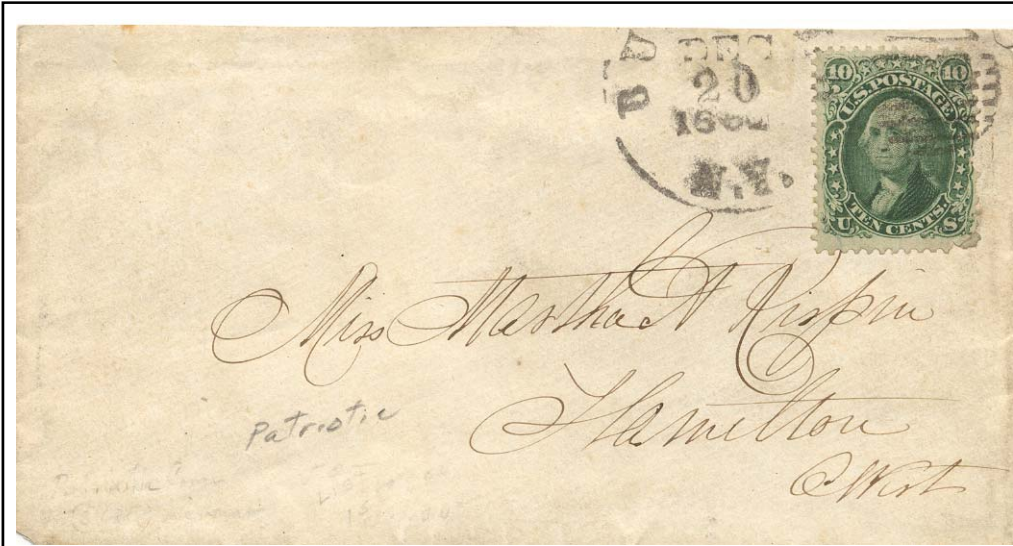 BU
DEC
20
1862
N.Y.
10 10
U.S. POSTAGE
TEN CENTS.
U S
Miss Martha A
Hamilton
C West
Patriotic